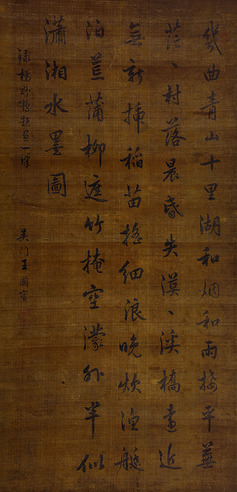 幾曲青山十里湖和烟和雨接平蕪
茫、村落晨昏失漠、溪橋遠近
無新插稻苗搖細浪晚炊漁艇
泊菰蒲柳遮竹掩空濛外半似
瀟湘水墨圖
一律
吳門王